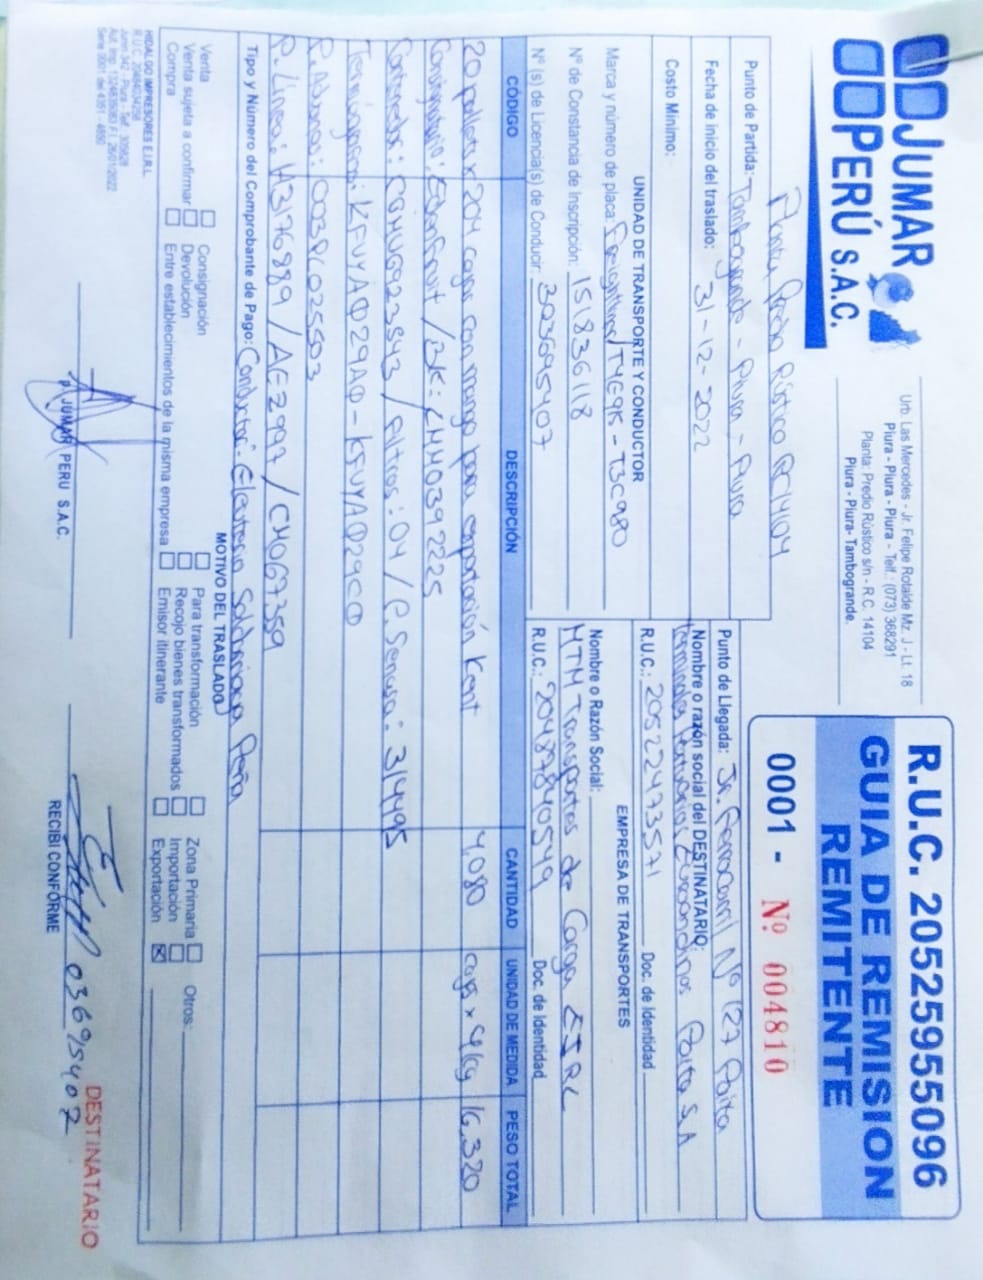 JUMAR
PERÚ S.A.C.
Urb. Las Mercedes - Jr. Felipe Rotalde Mz. J - Lt. 18
Piura - Piura - Piura - Telf.: (073) 368291
Planta: Predio Rústico s/n - R.C. 14104
Piura - Piura-Tambogrande.
R.U.C. 20525955096
GUIA DE REMISION
REMITENTE
0001 - Nº 004810
Planta Predio Rústico RC14104
Punto de Partida: Tambogrande - Piura - Piura
Fecha de Inicio del traslado: 31-12-2022
Costo Mínimo:
Punto de Llegada: Jr. Ferrocarril Nº 127 Paita
Nombre o razón social del DESTINATARIO:
Terminales Portuarios Euroandinos Paita S.A
R.U.C.: 20522473571 Doc. de Identidad
UNIDAD DE TRANSPORTE Y CONDUCTOR
Marca y número de placa: Freightliner/T4E95 - T3C980
Nº de Constancia de Inscripción: 151836118
Nº (s) de Licencia(s) de Conducir: 303695407
EMPRESA DE TRANSPORTES
Nombre o Razón Social:
HTM Transportes de Carga EIRL
R.U.C.: 20487840549 Doc. de Identidad
CÓDIGO DESCRIPCIÓN CANTIDAD UNIDAD DE MEDIDA PESO TOTAL
20 pallets x 204 cajas con mango para exportación Kent 4,080 cajas x 4kg 16,320
Consignatario: / BK: LMM0392225
Contenedor: / Filtros: 04 / P. Senasa: 314495
Termógrafos: KFUYA029A0 - KFUYA029C0
P. Aduanas: 003PI025503
P. Línea: / AE2997 / CH0673S9
Tipo y Número del Comprobante de Pago: Conductor - Electerio Saldarriaga Peña
MOTIVO DEL TRASLADO
Venta Consignación Para transformación Zona Primaria Otros:
Venta sujeta a confirmar Devolución Recojo bienes transformados Importación
Compra Entre establecimientos de la misma empresa Emisor itinerante Exportación
HIDALGO IMPRESORES E.I.R.L.
Serie 0001 del 4351 - 4850
JUMAR PERU S.A.C.
03695407
RECIBI CONFORME
DESTINATARIO